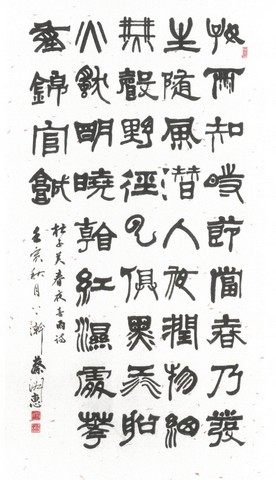 好雨知時節當春乃發
生隨風潛入夜潤物細
無聲野徑雲俱黑江船
火獨明曉看紅濕處花
重錦官城
杜子美春夜喜雨詩
秋月
蔡惠